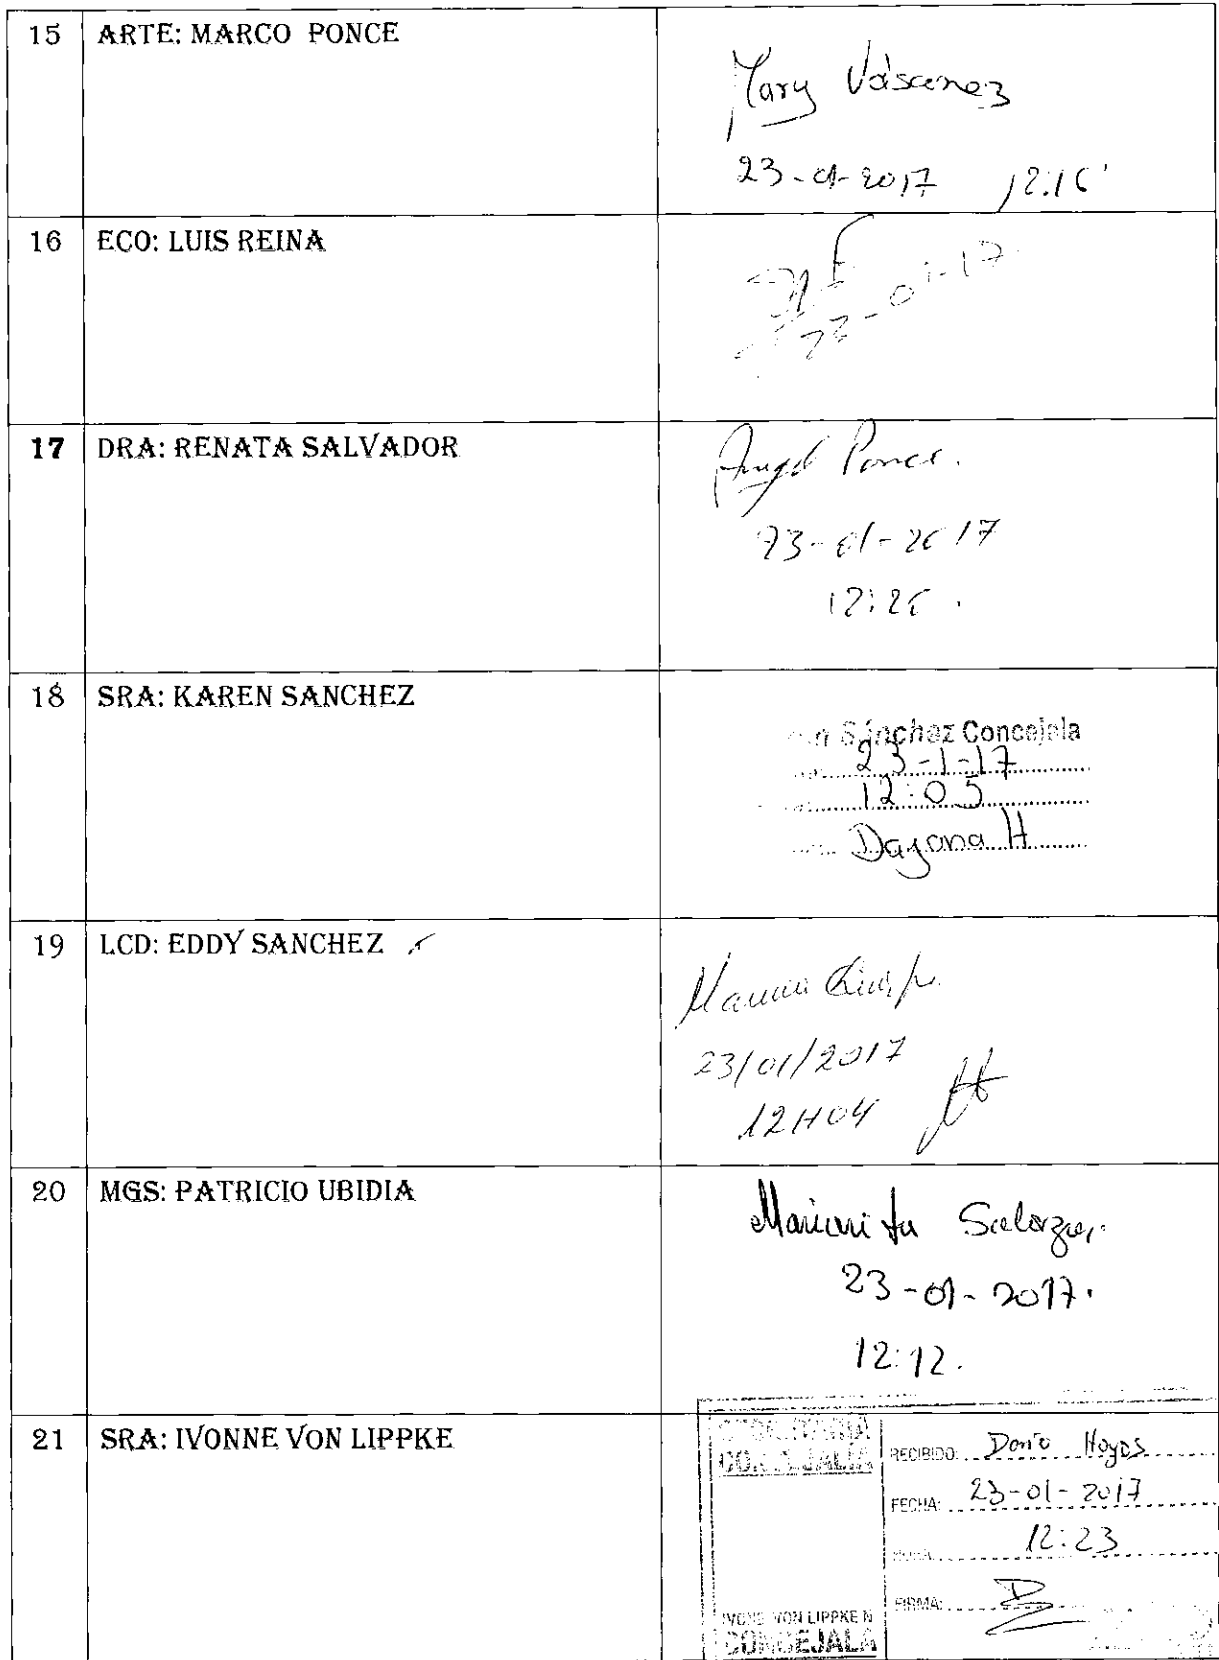 15 ARTE: MARCO PONCE
Mary Vásconez
23-01-2017 12:16
16 ECO: LUIS REINA
23-01-17
17 DRA: RENATA SALVADOR
Angel Ponce.
23-01-2017
12:26.
18 SRA: KAREN SANCHEZ
Sánchez Concejala
23-1-17
12:05
Dayana H
19 LCD: EDDY SANCHEZ
23/01/2017
12H04
20 MGS: PATRICIO UBIDIA
Marianita Salazar
23-01-2017.
12:12.
21 SRA: IVONNE VON LIPPKE
CONCEJALÍA
RECIBIDO: Dario Hoyos
FECHA: 23-01-2017
12:23
FIRMA:
IVONE VON LIPPKE N
CONCEJALA